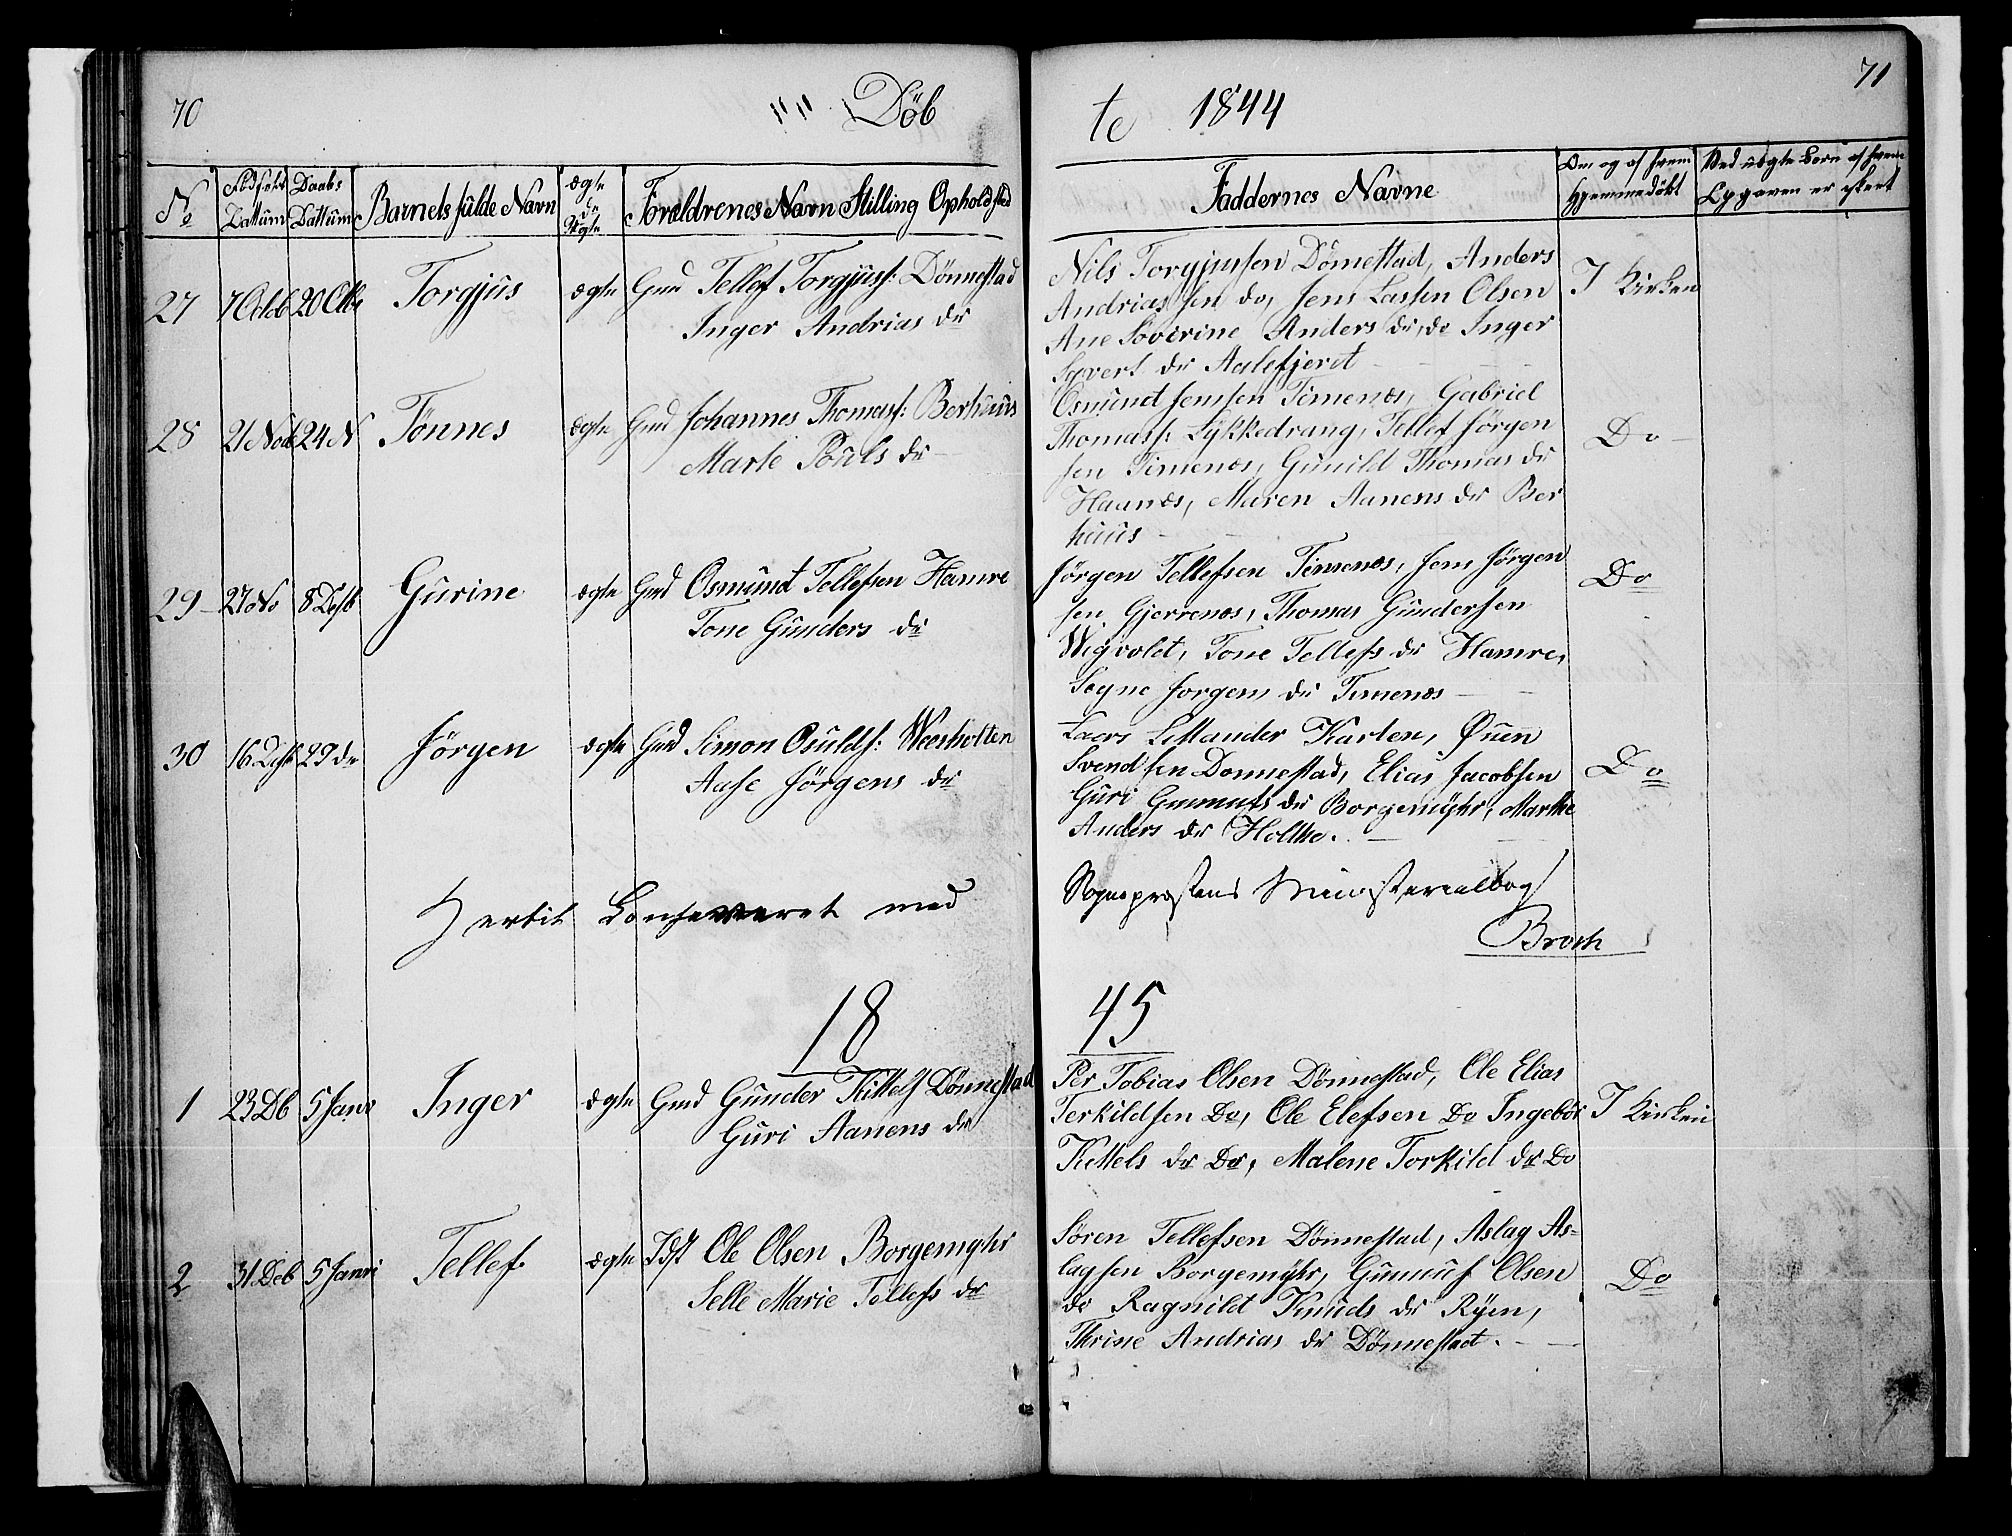 70
Döb
te 1844
71
No
Fødsels Dattum
Daabs Dattum
Barnets fulde Navn
ægte
Forældrenes Navn Stilling Opholdsted
Faddernes Navne
Om og af hvem Hjemmedöbt
Ved uægte Börn af hvem Opgaven er skeet
27 7 Octob 20 Otb Torgjus ægte Gmd Tellef Torgjuss: Dönnestad
Inger Andrias dr
Nils Torgjussen Dönnestad, Anders
Andriassen do, Jens Lassen Olsen
Ane Soverine Anders dr, do Inger
Syvert dr Aalefjeret
I Kirken
28 21 Nob 24 N Tönnes ægte Gmd Johannes Thomass: Berhuus
Marte Pouls dr
Osmund Jensen Timenæs, Gabriel
Thomass: Lykkedrang, Tellef Jörgen
sen Timenæs, Gunild Thomas dr
Haanæs, Maren Aanens dr Ber
huus
Do
29 27 No 8 Desb Gurine ægte Gmd Osmund Tellefsen Hamre
Tone Gunders dr
Jörgen Tellefsen Timenæs, Jens Jörgen
sen Gjerrenæs, Thomas Gundersen
Wigvoldt, Tone Tellefs dr Hamre,
Segne Jorgens dr Timenæs
Do
30 16 Desb 29 de Jörgen ægte Gmd Simon Osulds: Weesholten
Aase Jörgens dr
Karlen, Ouen
Svendsen Donnestad, Elias Jacobsen
Guri dr Borgemyhr, Marthe
Anders dr Holthe.
Do
Hertil Confereret med
Sogneprestens Ministerialbog
Broch
18
45
1 23 Db 5 Janr Inger ægte Gmd Gunder Kittels Dönnestad
Guri Aanens dr
Per Tobias Olsen Dönnestad, Ole Elias
Terkildsen Do, Ole Elefsen Do Ingebör
Kittels dr Do, Malene Torkild dr Do
I Kirken
2 31 Deb 5 Janri Tellef ægte Idst Ole Olsen Borgemyhr
Selle Marie Tellefs dr
Sören Tellefsen Dönnestad, Aslag As=
lagsen Borgemyhr, Gunnuf Olsen
do Ragnildt Knuds dr Ryen,
Thrine Andrias dr Dönnestadt.
Do